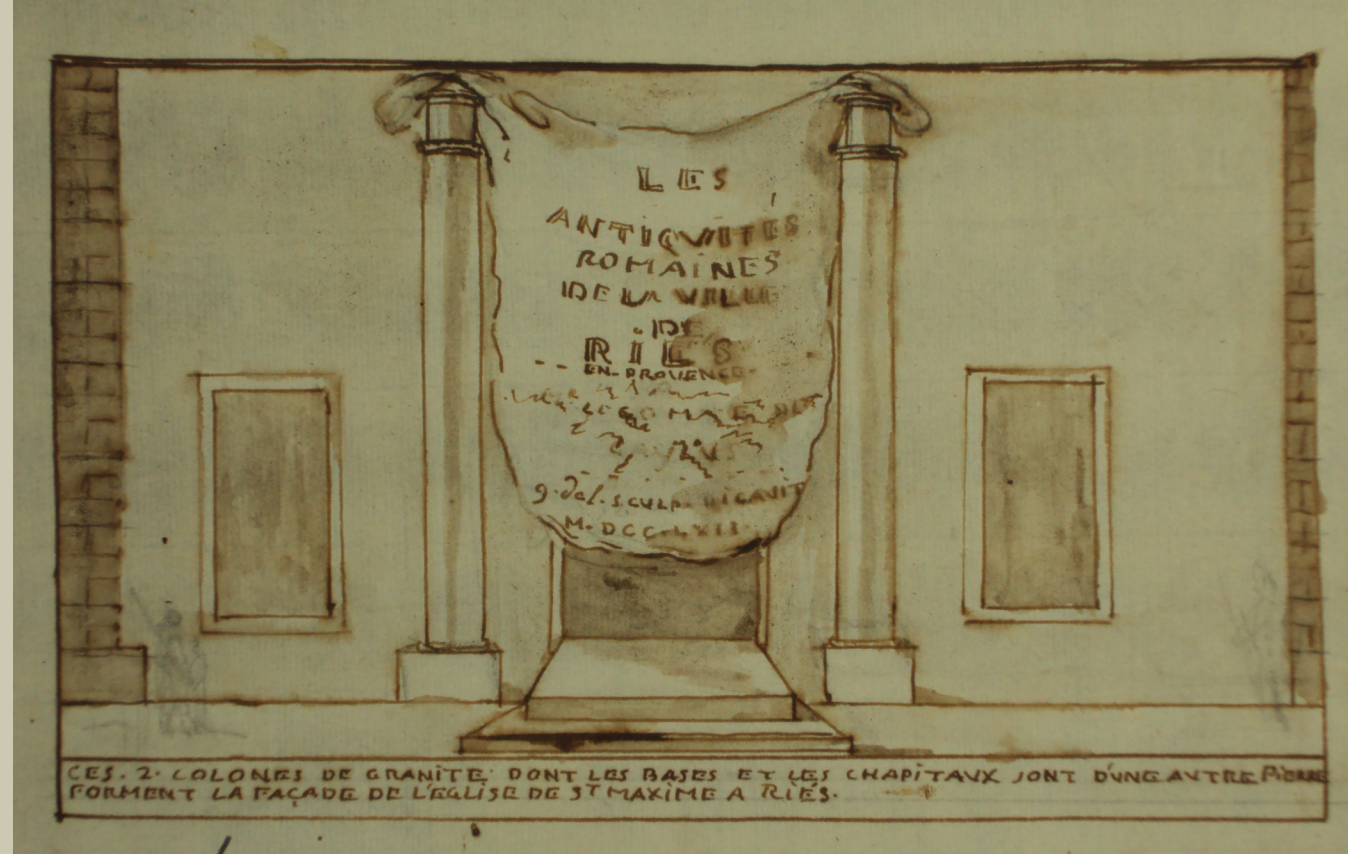 LES
ANTIQVITÉS
ROMAINES
DE LA VILLE
DE
RIÉS
EN. PROVENCE.
g. del. SCULP.
M. DCC. LXII.
CES. 2. COLONES DE GRANITE DONT LES BASES ET LES CHAPITAUX SONT D'VNE AVTRE PIERRE
FORMENT LA FAÇADE DE L'EGLISE DE ST MAXIME A RIÉS.